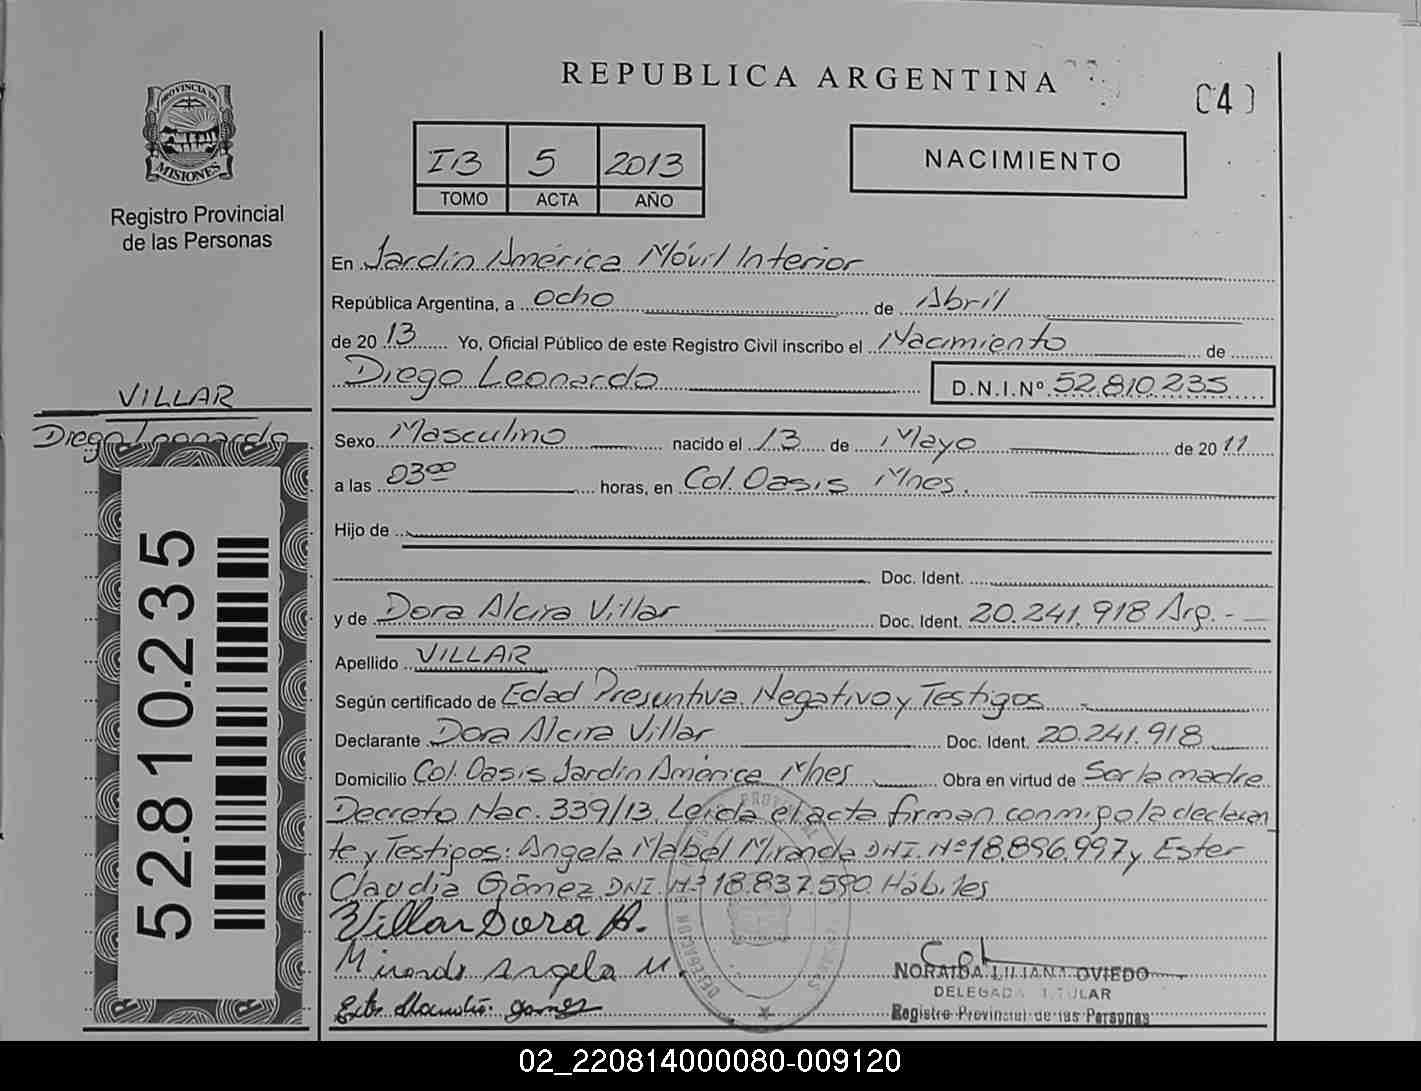 REPUBLICA ARGENTINA
(4)
PROVINCIA DE
MISIONES
Registro Provincial
de las Personas
IB 5 2013
TOMO ACTA AÑO
NACIMIENTO
En Jardín América Móvil Interior
República Argentina, a ocho de Abril
de 2013 Yo, Oficial Público de este Registro Civil inscribo el Nacimiento de
Diego Leonardo D.N.I.Nº 52.810.235
VILLAR
Diego Leonardo
52.810.235
Sexo Masculino nacido el 13 de Mayo de 2011
a las 03⁰⁰ horas, en Col. Oasis Mnes.
Hijo de
Doc. Ident.
y de Dora Alcira Villar Doc. Ident. 20.241.918 Arg.-
Apellido VILLAR
Según certificado de Edad Presuntiva. Negativo y Testigos
Declarante Dora Alcira Villar Doc. Ident. 20.241.918
Domicilio Col. Oasis Jardín América Mnes Obra en virtud de Ser la madre
Decreto Nac. 339/13. Leída el acta firman conmigo la declaran
te y Testigos: Angela Mabel Miranda DNI. Nº 18.896.997 y Ester
Claudia Gómez DNI. Nº 18.837.590. Hábiles
Villar Dora A.
Miranda Angela M.
NORAIDA LILIANA OVIEDO
DELEGADA TITULAR
Registro Provincial de las Personas
02_220814000080-009120